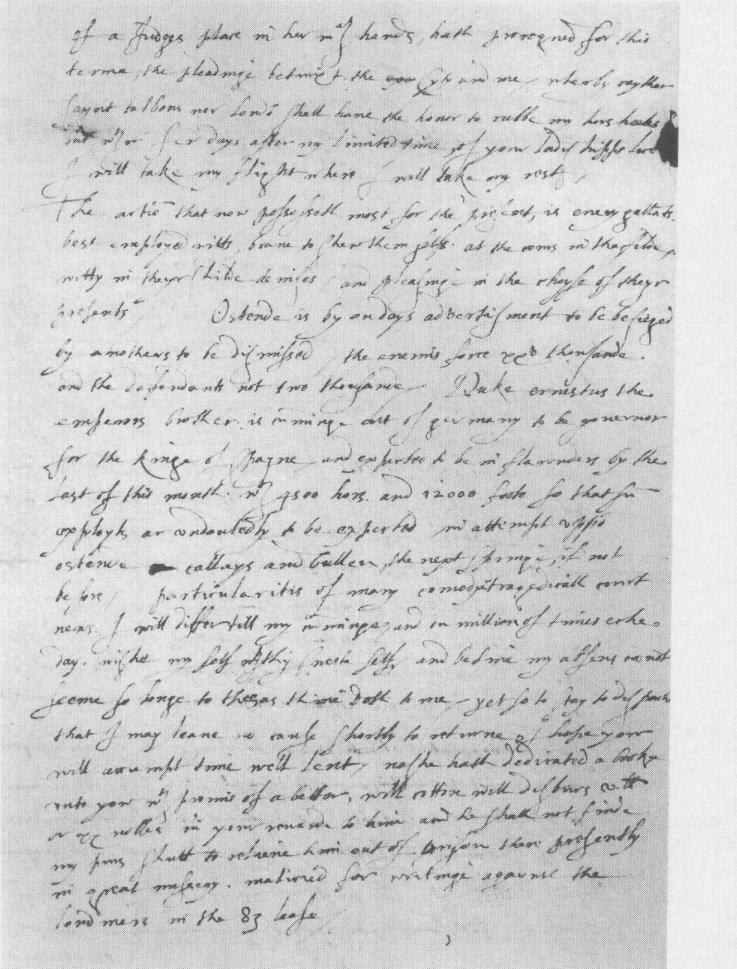 of a Judges place in her ma hands, hath proroqued for this
terme, the pleadinge betwixt the and me, wherby neyther
talbons nor Lords shall have the honor to rubbe my hors
but wt or fewr days after my limited time of yowr Ladishipps
I will take my flight where I will take my rest
The artio that now possesseth most for the present, is
best employe witts, brave to shew them selfs at the in
witty in theyr devises, and pleasinge in the choyse of theyr
presents Ostende is by on days advertisment to be beseged
by anothers to be dismissed, the enemis force xxv thousande.
and the defendants not two thousande. Duke ernestus the
emperors brother is cuminge out of germany to be governor
for the kinge of Spayne and expected to be in flaunders by the
last of this month wt 4500 hors. and 12000 foote so that su
exployts ar undoutedly to be expected in attempt uppo
ostende callays and bullen, the next springe, if not
before, particularitis of many court
news. I will differ till my cuminge, and on million of times eche
day. wishe my self wt thy sweete self, and bed me my absens canot
seeme so longe to the as thine doth to me, yet so to stay to
that I may leave no cause shortly to returne as I hope yow
will accumpt time well spent, nashe hath dedicated a booke
unto yow wt promis of a better, will cotton will disburs v ll
or xx nobles in yowr rewarde to him and he shall not finde
my purs shutt to relieve him out of prison there presently
in great missery. malicied for writinge against the
londiners in the 83 leafe